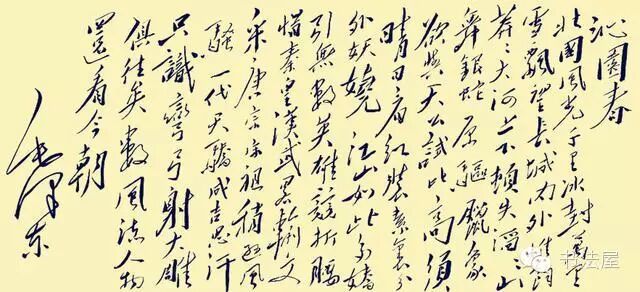 沁園春
北國風光千里冰封萬里
雪飄望長城內外惟餘
莽々大河上下頓失滔々山
舞銀蛇原驅臘象
欲與天公試比高須
晴日看紅裝素裹分
外妖嬈江山如此多嬌
引無數英雄競折腰
惜秦皇漢武略輸文
采唐宗宋祖稍遜風
騷一代天驕成吉思汗
只識彎弓射大雕
俱往矣數風流人物
還看今朝
毛澤東
书法屋